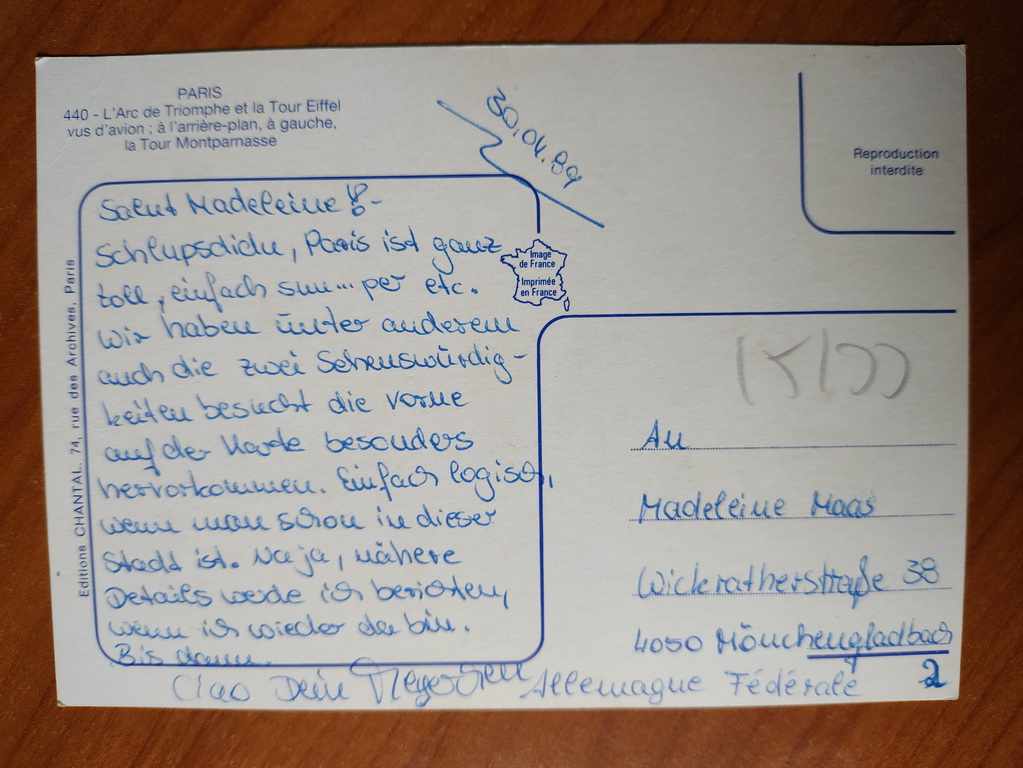 PARIS
440 - L'Arc de Triomphe et la Tour Eiffel
vus d'avion ; à l'arrière-plan, à gauche,
la Tour Montparnasse
30.04.89
Reproduction
interdite
Salut Madeleine!-
Schlupsdidu, Paris ist ganz
toll, einfach suu... per etc.
Wir haben unter anderem
auch die zwei Sehenswürdig-
keiten besucht die vorne
auf der Karte besonders
hervorkommen. Einfach logisch,
wenn man schon in dieser
Stadt ist. Na ja, nähere
Details werde ich berichten,
wenn ich wieder da bin.
Bis dann.
Ciao Dein
Image
de France
Imprimée
en France
Editions CHANTAL, 74, rue des Archives, Paris
An
Madeleine Maas
Wickratherstraße 38
4050 Mönchengladbach
2
Allemagne Fédérale